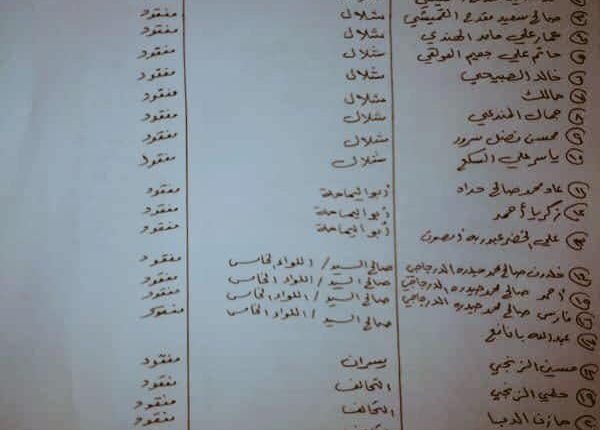 صالح سعيد مقدح شلال مفقود
٤ عمار علي حامد الجندي شلال مفقود
٥ حاتم علي جعيم العولقي شلال مفقود
٦ خالد الصبيحي شلال مفقود
٧ مالك شلال مفقود
٨ جمال المندعي شلال مفقود
٩ محسن فضل سرور شلال مفقود
١٠ ياسر علي السكع شلال مفقود
١١ محمد صالح حداد أبو اليمامة مفقود
١٢ زكريا أحمد أبو اليمامة مفقود
١٣ علي الخضر عبدربه أبو اليمامة مفقود
١٤ صالح محمد حيدره الدرجاجي صالح السيد / اللواء الخامس مفقود
١٥ أحمد صالح محمد حيدره الدرجاجي صالح السيد / اللواء الخامس مفقود
١٦ فارس صالح محمد حيدره الدرجاجي صالح السيد / اللواء الخامس مفقود
١٧ عبدالله بانافع صالح السيد / اللواء الخامس مفقود
حسين الزنجي يسران مفقود
الزنجي التحالف مفقود
مازن الدبا التحالف مفقود